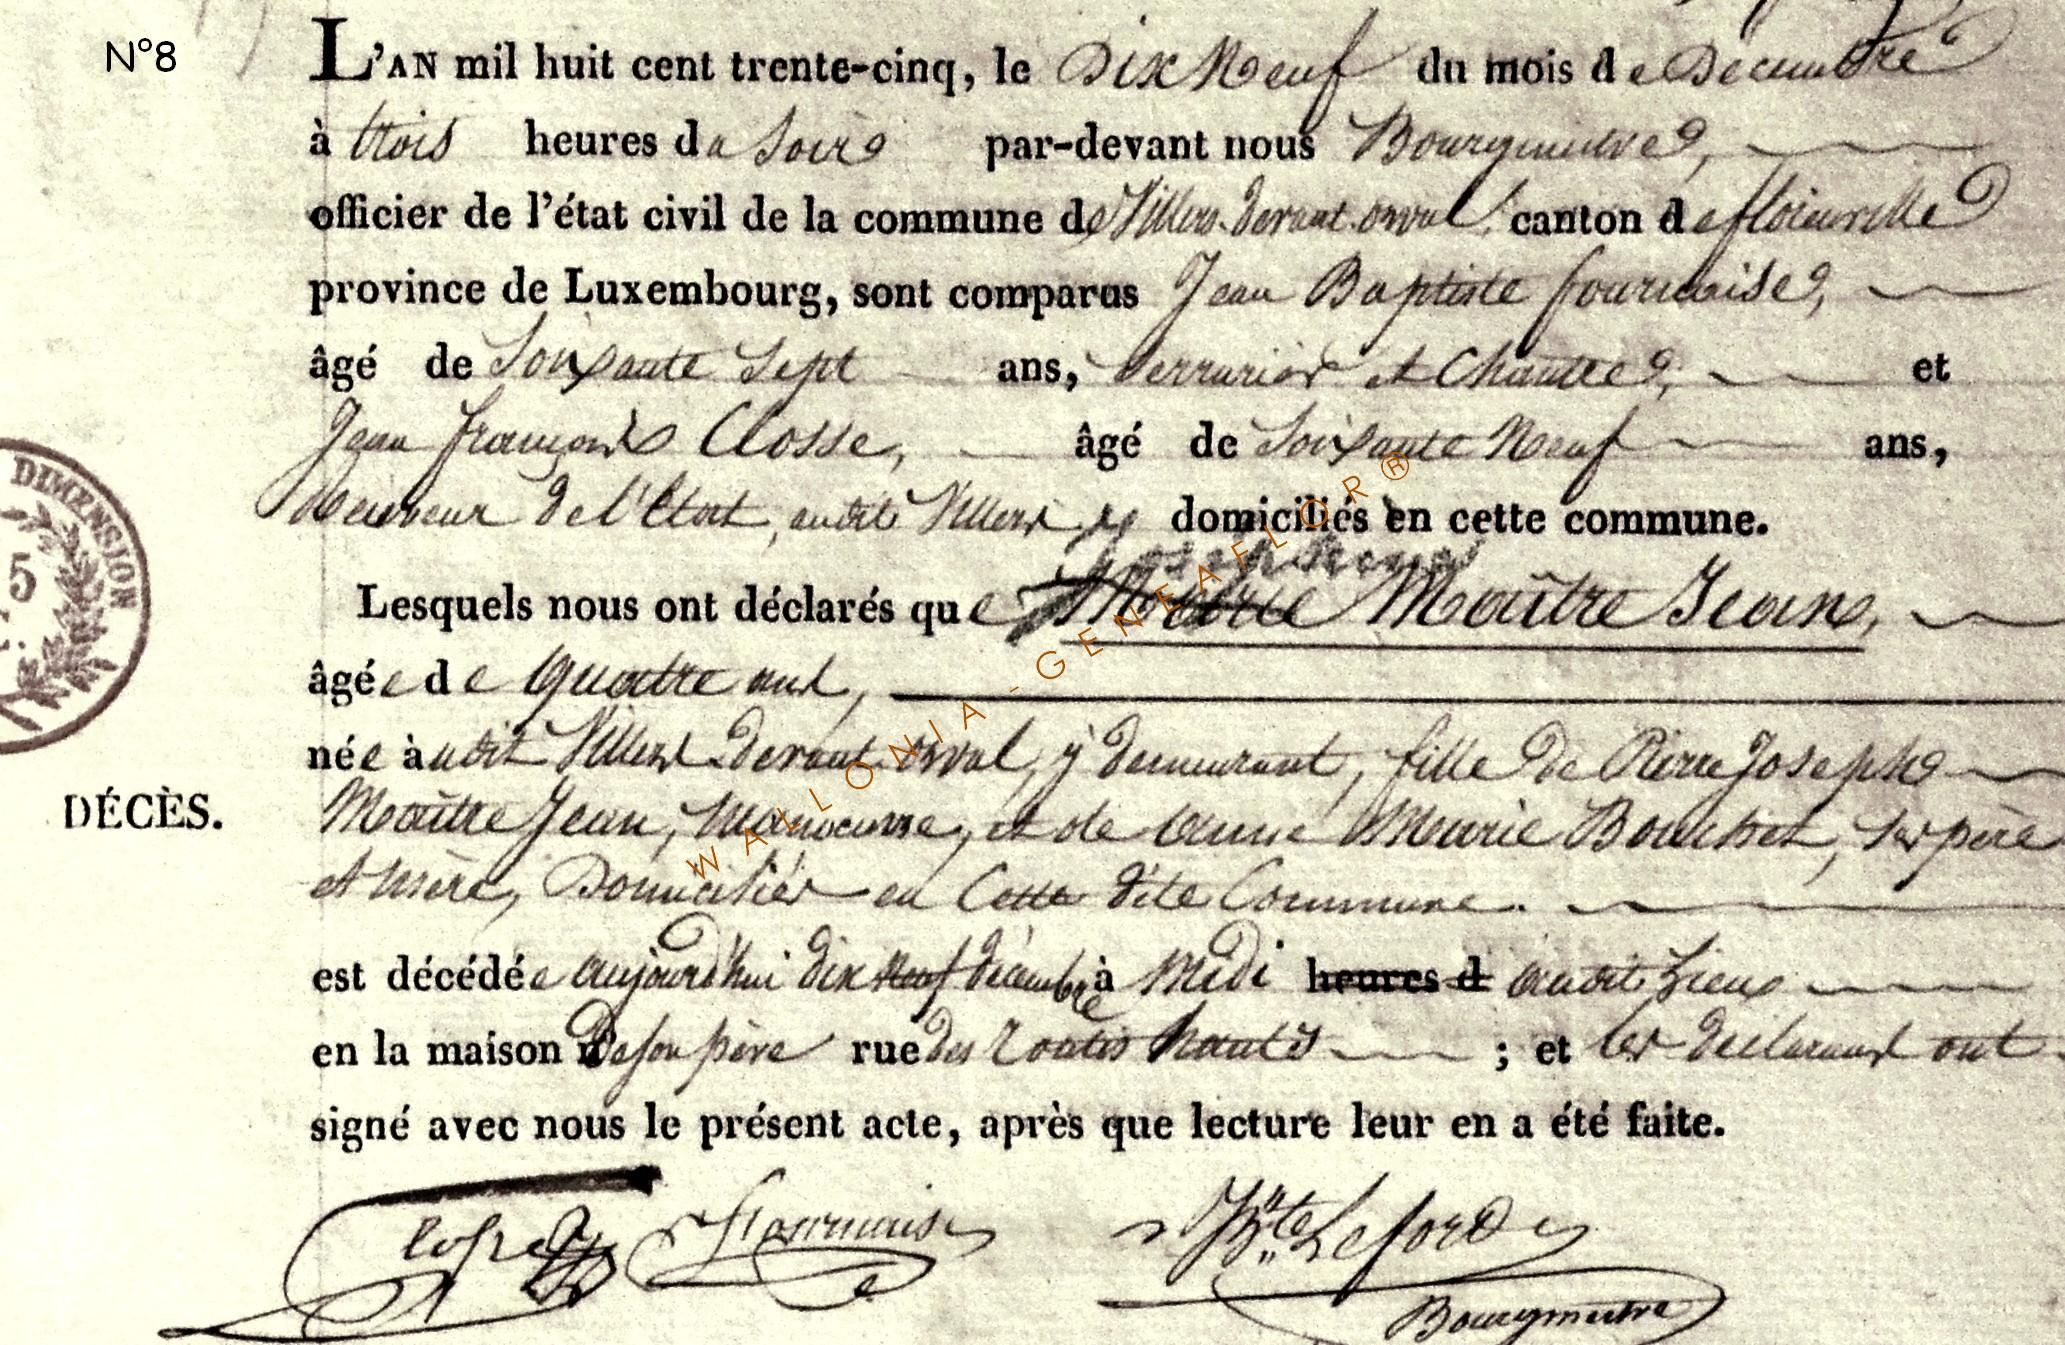 N°8
L'AN mil huit cent trente-cinq, le Dix Neuf du mois de Décembre
à trois heures du Soir par-devant nous Bourgmestre,
officier de l'état civil de la commune de Villers-devant-orval canton de florenville
province de Luxembourg, sont comparus Jean Baptiste fournaise,
âgé de Soixante Sept ans, Serrurier et Chantre, et
Jean françois Closse, âgé de Soixante Neuf ans,
de l'Etat, audit Villers domiciliés en cette commune.
Lesquels nous ont déclarés que Marie Maître Jean,
âgée de quatre ans,
née audit Villers devant orval, y demeurant, fille de Pierre Joseph
Maître Jean, Manoeuvre, et de anne Marie Bouchet, ses père
et mère, Domiciliés en Cette dite Commune.
est décédée aujourd'hui dix neuf décembre à Midi heures d audit Lieu
en la maison de son père rue des hauts ; et les déclarans ont
signé avec nous le présent acte, après que lecture leur en a été faite.
DÉCÈS.
DIMENSION
5
WALLONIA - GENEAFLOR®
Closse Fournaise JBte Leford
Bourgmestre